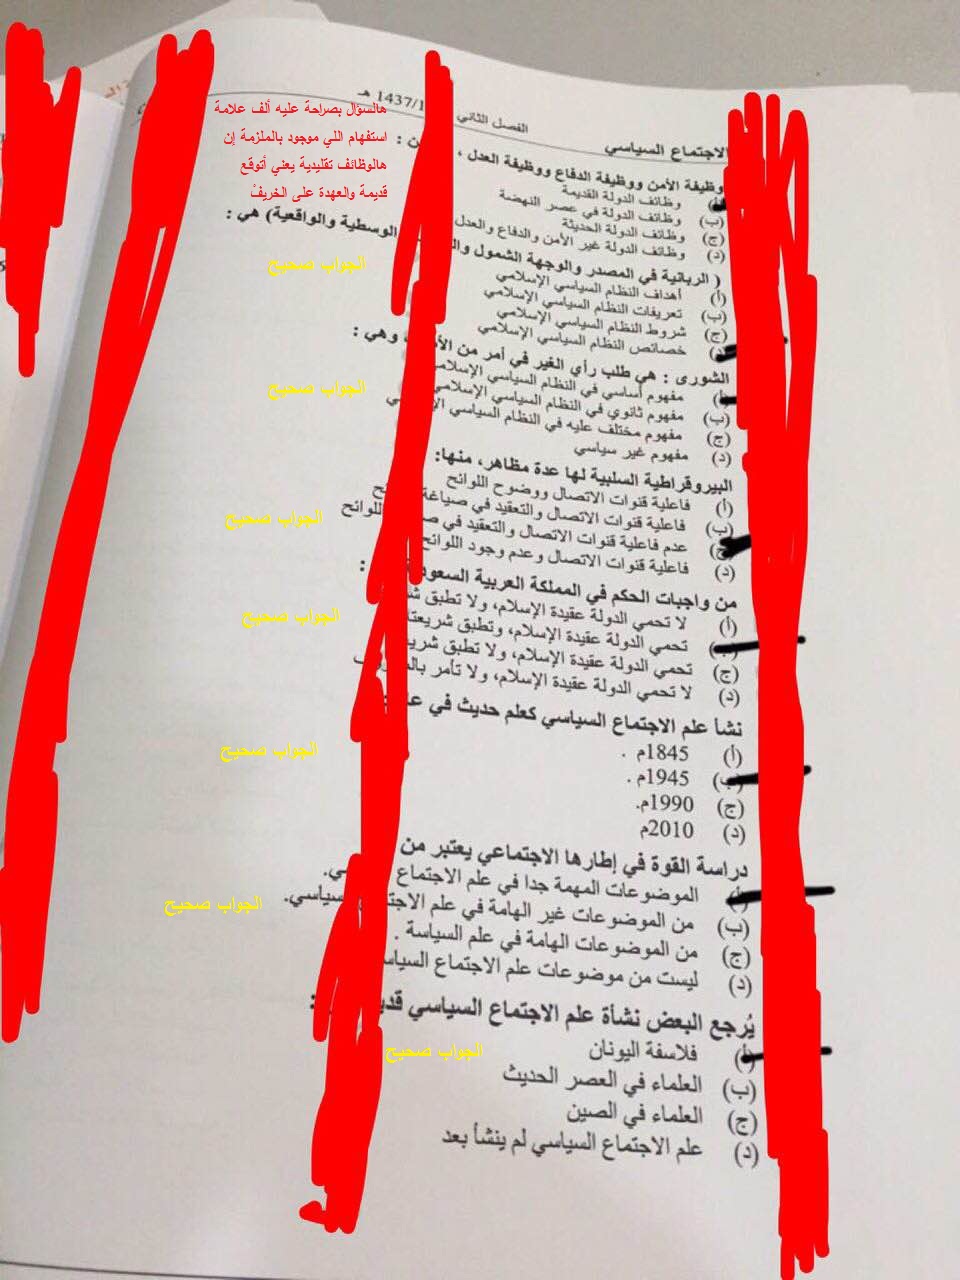 الفصل الثاني 1437/1 هـ
الاجتماع السياسي
هالسؤال بصراحة عليه ألف علامة
استفهام اللي موجود بالملزمة إن
هالوظائف تقليدية يعني أتوقع
قديمة والعهدة على الخريف
وظيفة الأمن ووظيفة الدفاع ووظيفة العدل ،
وظائف الدولة القديمة
(ب) وظائف الدولة في عصر النهضة
(ج) وظائف الدولة الحديثة
(د) وظائف الدولة غير الأمن والدفاع والعدل
( الربانية في المصدر والوجهة الشمول الوسطية والواقعية) هي :
الجواب صحيح
(أ) أهداف النظام السياسي الإسلامي
(ب) تعريفات النظام السياسي الإسلامي
(ج) شروط النظام السياسي الإسلامي
خصائص النظام السياسي الإسلامي
الشورى : هي طلب رأي الغير في أمر من وهي :
الجواب صحيح
مفهوم أساسي في النظام السياسي الإسلامي
(ب) مفهوم ثانوي في النظام السياسي الإسلامي
(ج) مفهوم مختلف عليه في النظام السياسي
(د) مفهوم غير سياسي
البيروقراطية السلبية لها عدة مظاهر، منها:
(أ) فاعلية قنوات الاتصال ووضوح اللوائح
(ب) فاعلية قنوات الاتصال والتعقيد في صياغة
الجواب صحيح
(ج) عدم فاعلية قنوات الاتصال والتعقيد في اللوائح
(د) فاعلية قنوات الاتصال وعدم وجود اللوائح
من واجبات الحكم في المملكة العربية السعودية :
(أ) لا تحمي الدولة عقيدة الإسلام، ولا تطبق
الجواب صحيح
(ب) تحمي الدولة عقيدة الإسلام، وتطبق
(ج) تحمي الدولة عقيدة الإسلام، ولا تطبق
(د) لا تحمي الدولة عقيدة الإسلام، ولا تأمر
نشأ علم الاجتماع السياسي كعلم حديث في :
الجواب صحيح
(أ) 1845م .
(ب) 1945م .
(ج) 1990م.
(د) 2010م
دراسة القوة في إطارها الاجتماعي يعتبر من
(أ) الموضوعات المهمة جدا في علم الاجتماع
الجواب صحيح
(ب) من الموضوعات غير الهامة في علم السياسي.
(ج) من الموضوعات الهامة في علم السياسة .
(د) ليست من موضوعات علم الاجتماع
يُرجع البعض نشأة علم الاجتماع السياسي :
الجواب صحيح
(أ) فلاسفة اليونان
(ب) العلماء في العصر الحديث
(ج) العلماء في الصين
(د) علم الاجتماع السياسي لم ينشأ بعد